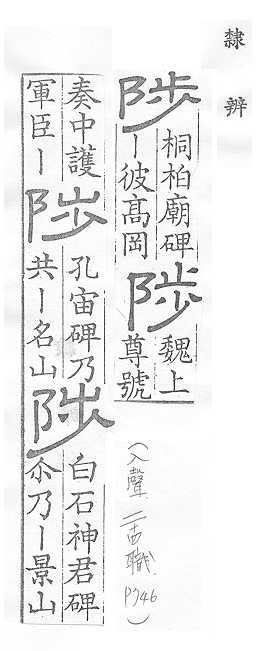 隸辨
陟
桐柏廟碑
丨彼髙岡
陟
魏上
尊號
奏中護
軍臣丨
陟
孔宙碑乃
共丨名山
陟
白石神君碑
尒乃丨景山
(入聲 二十四職 P746)